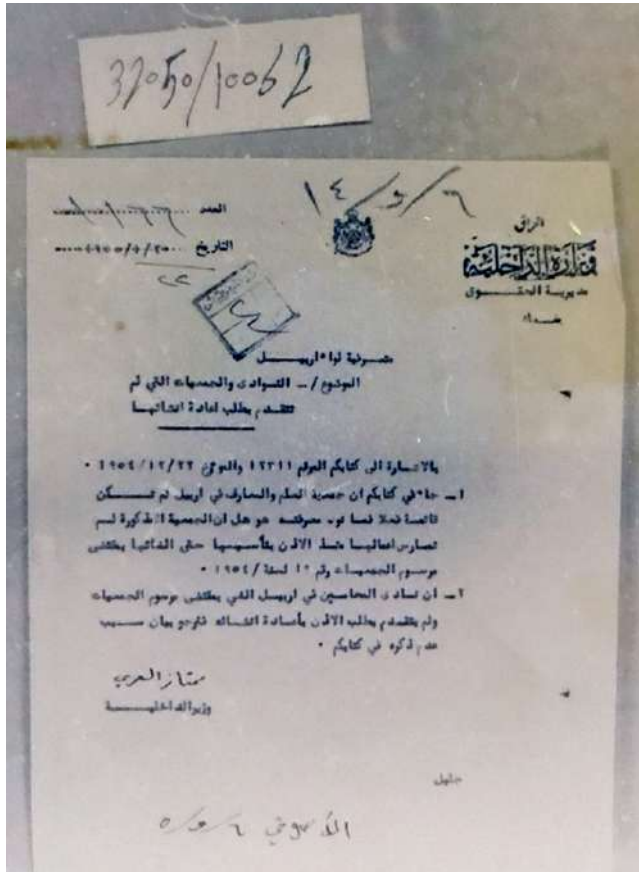 32050/10062
١٤/٥/٦
العراق
وزارة الداخلية
مديرية الحقوق
بغداد
العدد
التاريخ
متصرفية لواء اربيل
الموضوع/ــ النوادى والجمعيات التي لم
تتقدم بطلب اعادة انشائها
بالاشارة الى كتابكم المرقم ١٢٣١١ والمؤرخ ١٩٥٤/١٢/٢٢ ٠
١ــ جاء في كتابكم ان جمعية العلم والمعارف في اربيل لم تكن
قائمة فعلا فما نود معرفته هو هل ان الجمعية المذكورة لم
تمارس اعمالها منذ الاذن بتأسيسها حتى الغائها بمقتضى
مرسوم الجمعيات رقم ١٩ لسنة/١٩٥٤ ٠
٢ــ ان نادى المحامين في اربيل الغي بمقتضى مرسوم الجمعيات
ولم يتقدم بطلب الاذن بأعادة انشائه فنرجو بيان سبب
عدم ذكره في كتابكم ٠
ممتاز العمري
وزير الداخلية
جليل